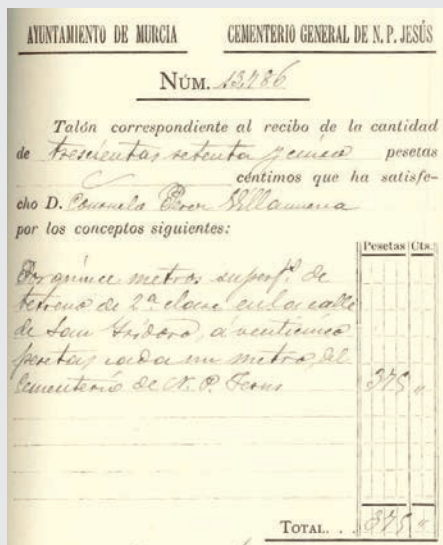 AYUNTAMIENTO DE MURCIA CEMENTERIO GENERAL DE N. P. JESÚS
NÚM. 13.786
Talón correspondiente al recibo de la cantidad
de trescientas setenta y cinco pesetas
céntimos que ha satisfe-
cho D. Consuelo Perez Villanueva
por los conceptos siguientes:
Pesetas Cts.
Por quince metros superfl. de
terreno de 2ª clase en la calle
de San Isidoro, a veinticinco
pesetas cada un metro, del
Cementerio de N. P. Jesus 375 "
TOTAL. . . 375 "